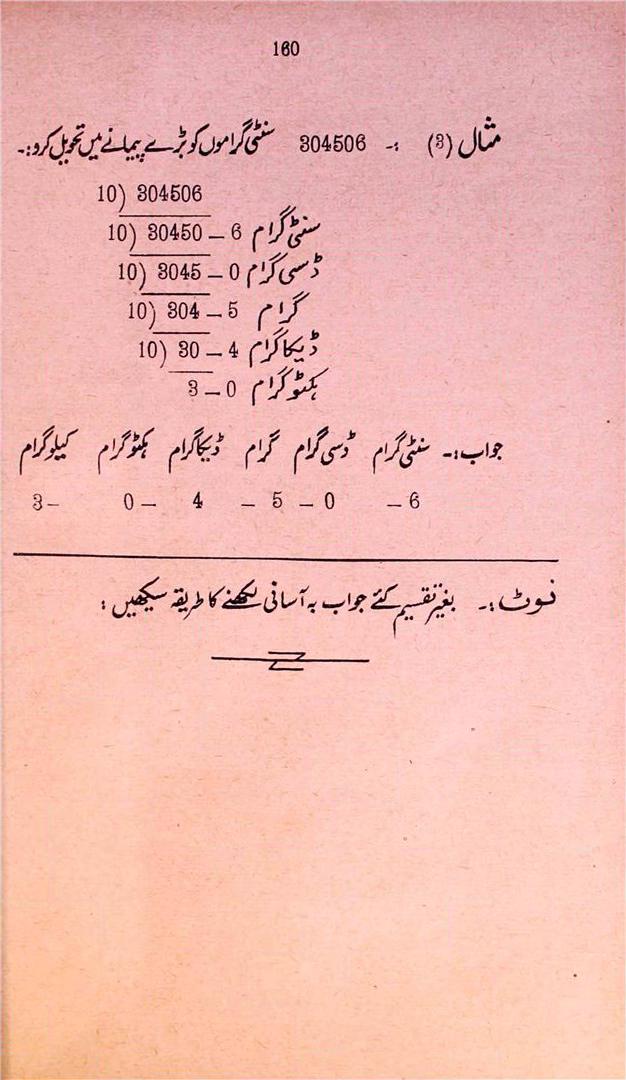 160
مثال (3) :- 304506 سنٹی گراموں کو بڑے پیمانے میں تحویل کرو:-
10) 304506
10) 30450 – 6 سنٹی گرام
10) 3045 – 0 ڈسی گرام
10) 304 – 5 گرام
10) 30 – 4 ڈیکا گرام
3 – 0 ہکٹو گرام
جواب:- سنٹی گرام ڈسی گرام گرام ڈیکا گرام ہکٹو گرام کیلو گرام
3 – 0 – 4 – 5 – 0 – 6
نوٹ:- بغیر تقسیم کئے جواب بہ آسانی لکھنے کا طریقہ سیکھیں :